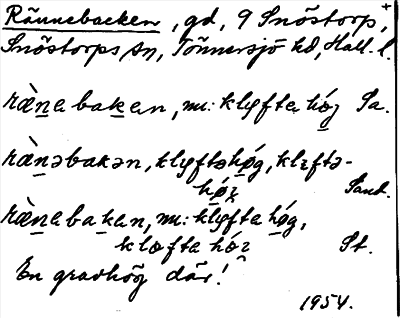 Rännebacken, gd, 9 Snöstorp,+
Snöstorps sn, Tönnersjö hd, Hall. l.
rὰn̲a bak̲an, m: klyfta hó̲g Sa.
rὰn̲əbakən, klyftəhø̲g, klɛftə-
hǿʒ Sand.
rὰn̲abak̲an, m: kly̲fta hó̲g,
kløfta hǿʒ St.
En gravhög där!
1954.